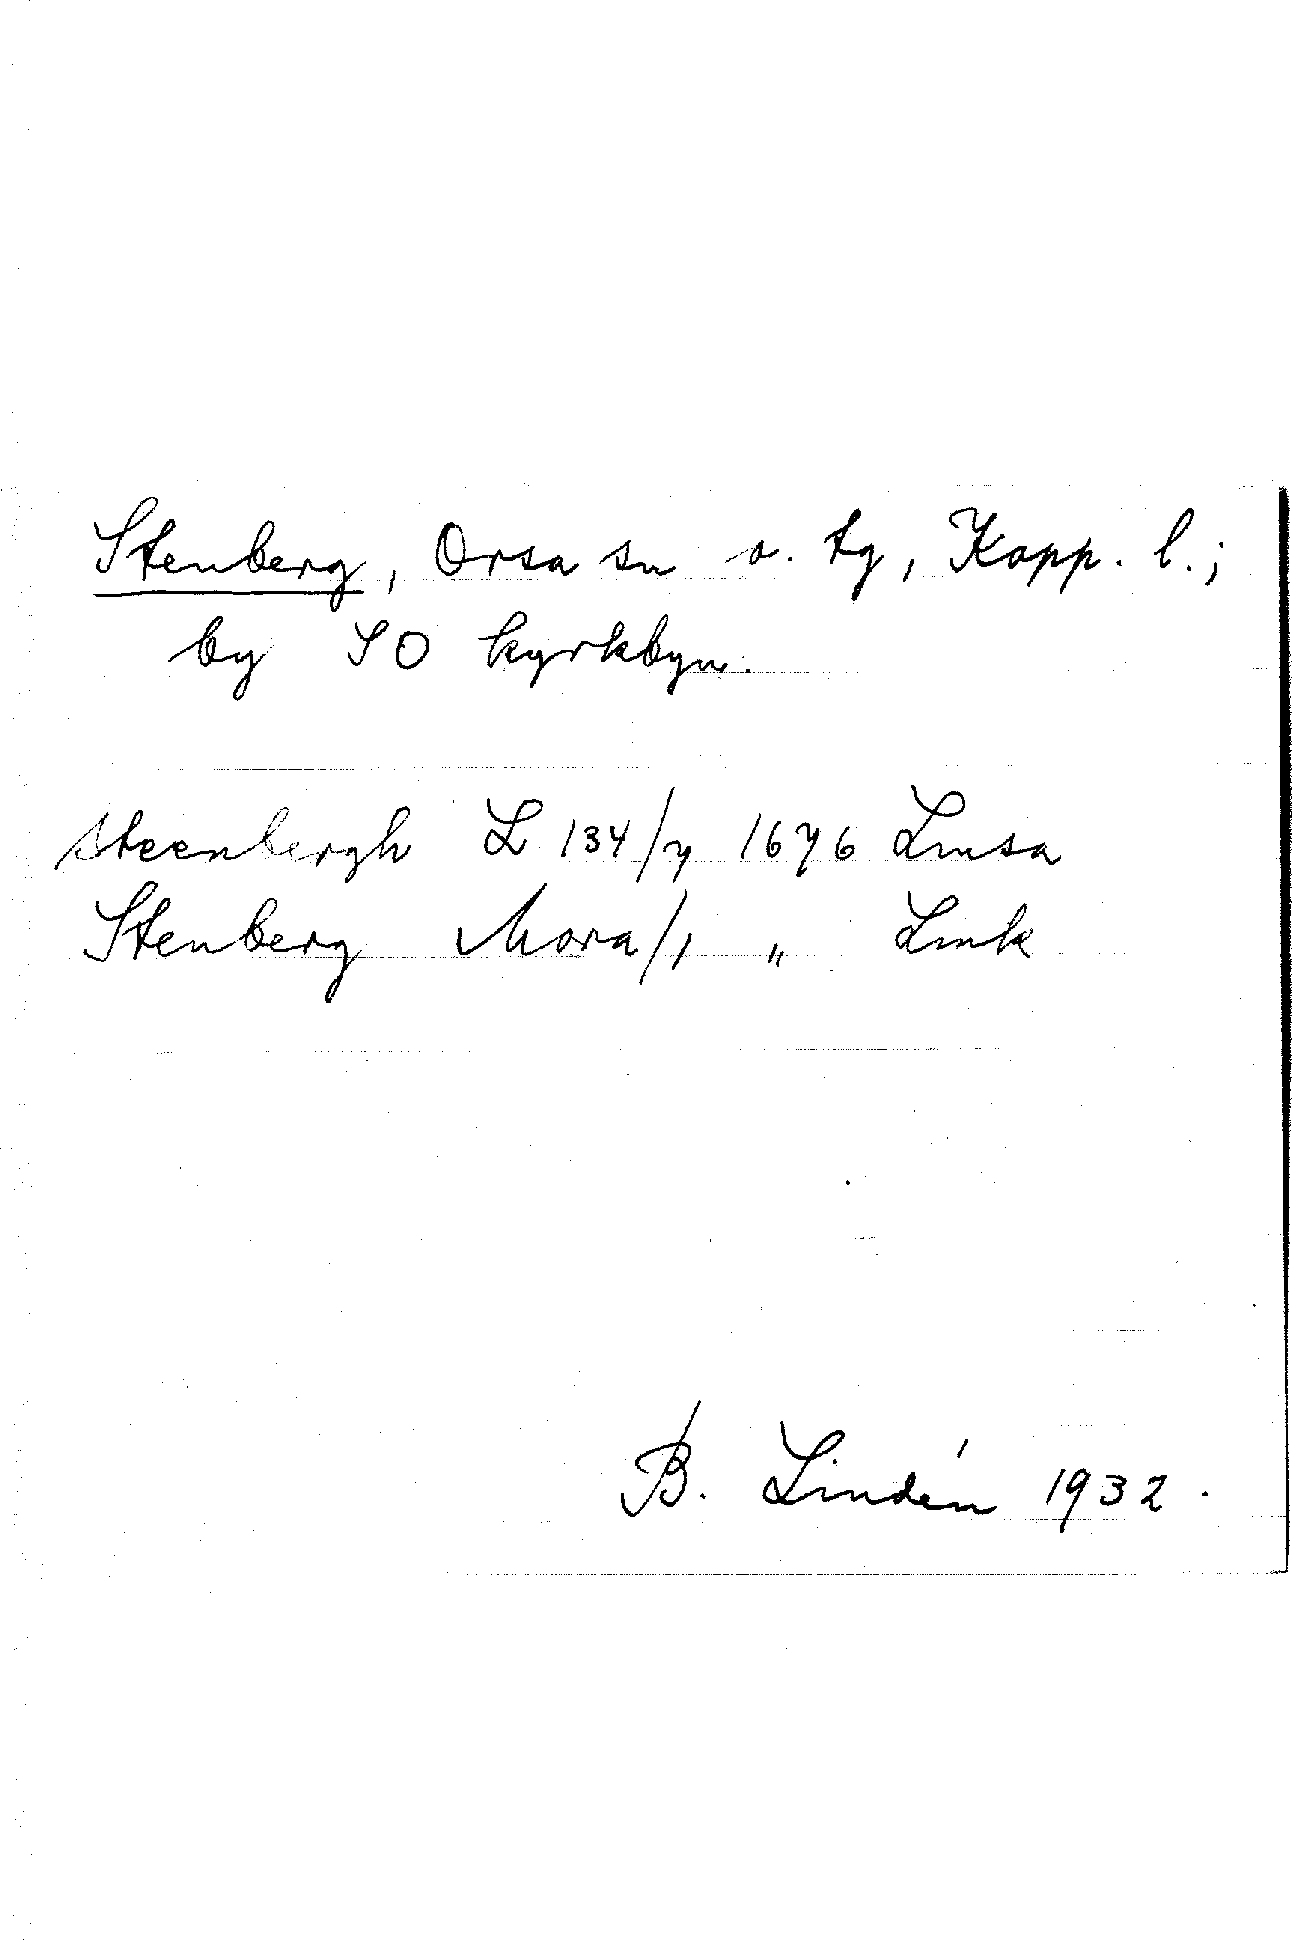 Stenberg, Orsa sn o. tg, Kopp. l.;
by SO kyrkbyn.
steenbergh L 134/7 1676 Lmsa
Stenberg Mora/1 „ Lmk
B. Lindén 1932.